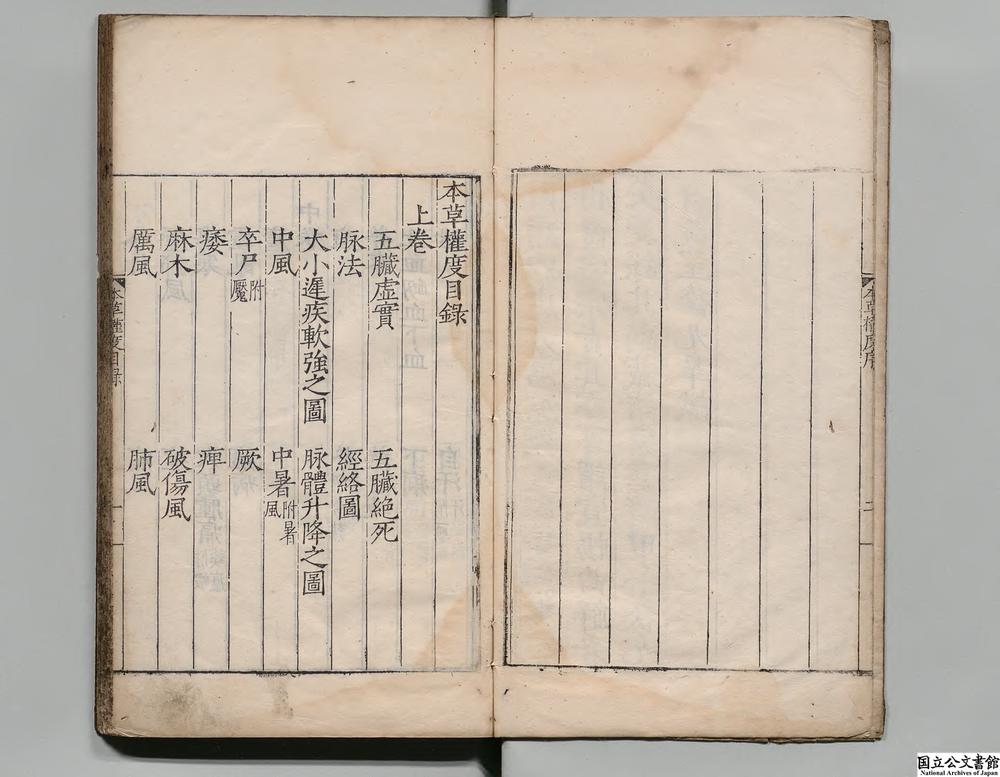 本草權度序
二
本草權度目錄
上卷
五臟虛實 五臟絕死
脉法 經絡圖
大小遲疾軟強之圖 脉體升降之圖
中風 中暑附暑風
卒尸附魘 厥
痿 痺
麻木 破傷風
厲風 肺風
本草權度目錄
一
国立公文書館
National Archives of Japan